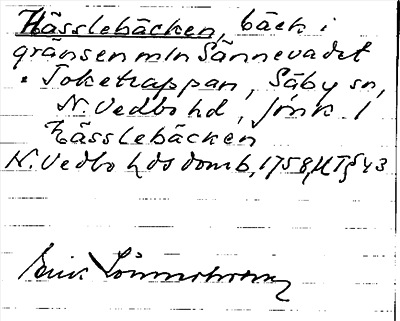 Hässlebäcken, bäck i
gränsen mln Sännevadet
o Toketrappan, Säby sn,
N. Vedbo hd, Jönk. l
Hässlebäcken
N. Vedbo hds domb, 1758, HT § 43